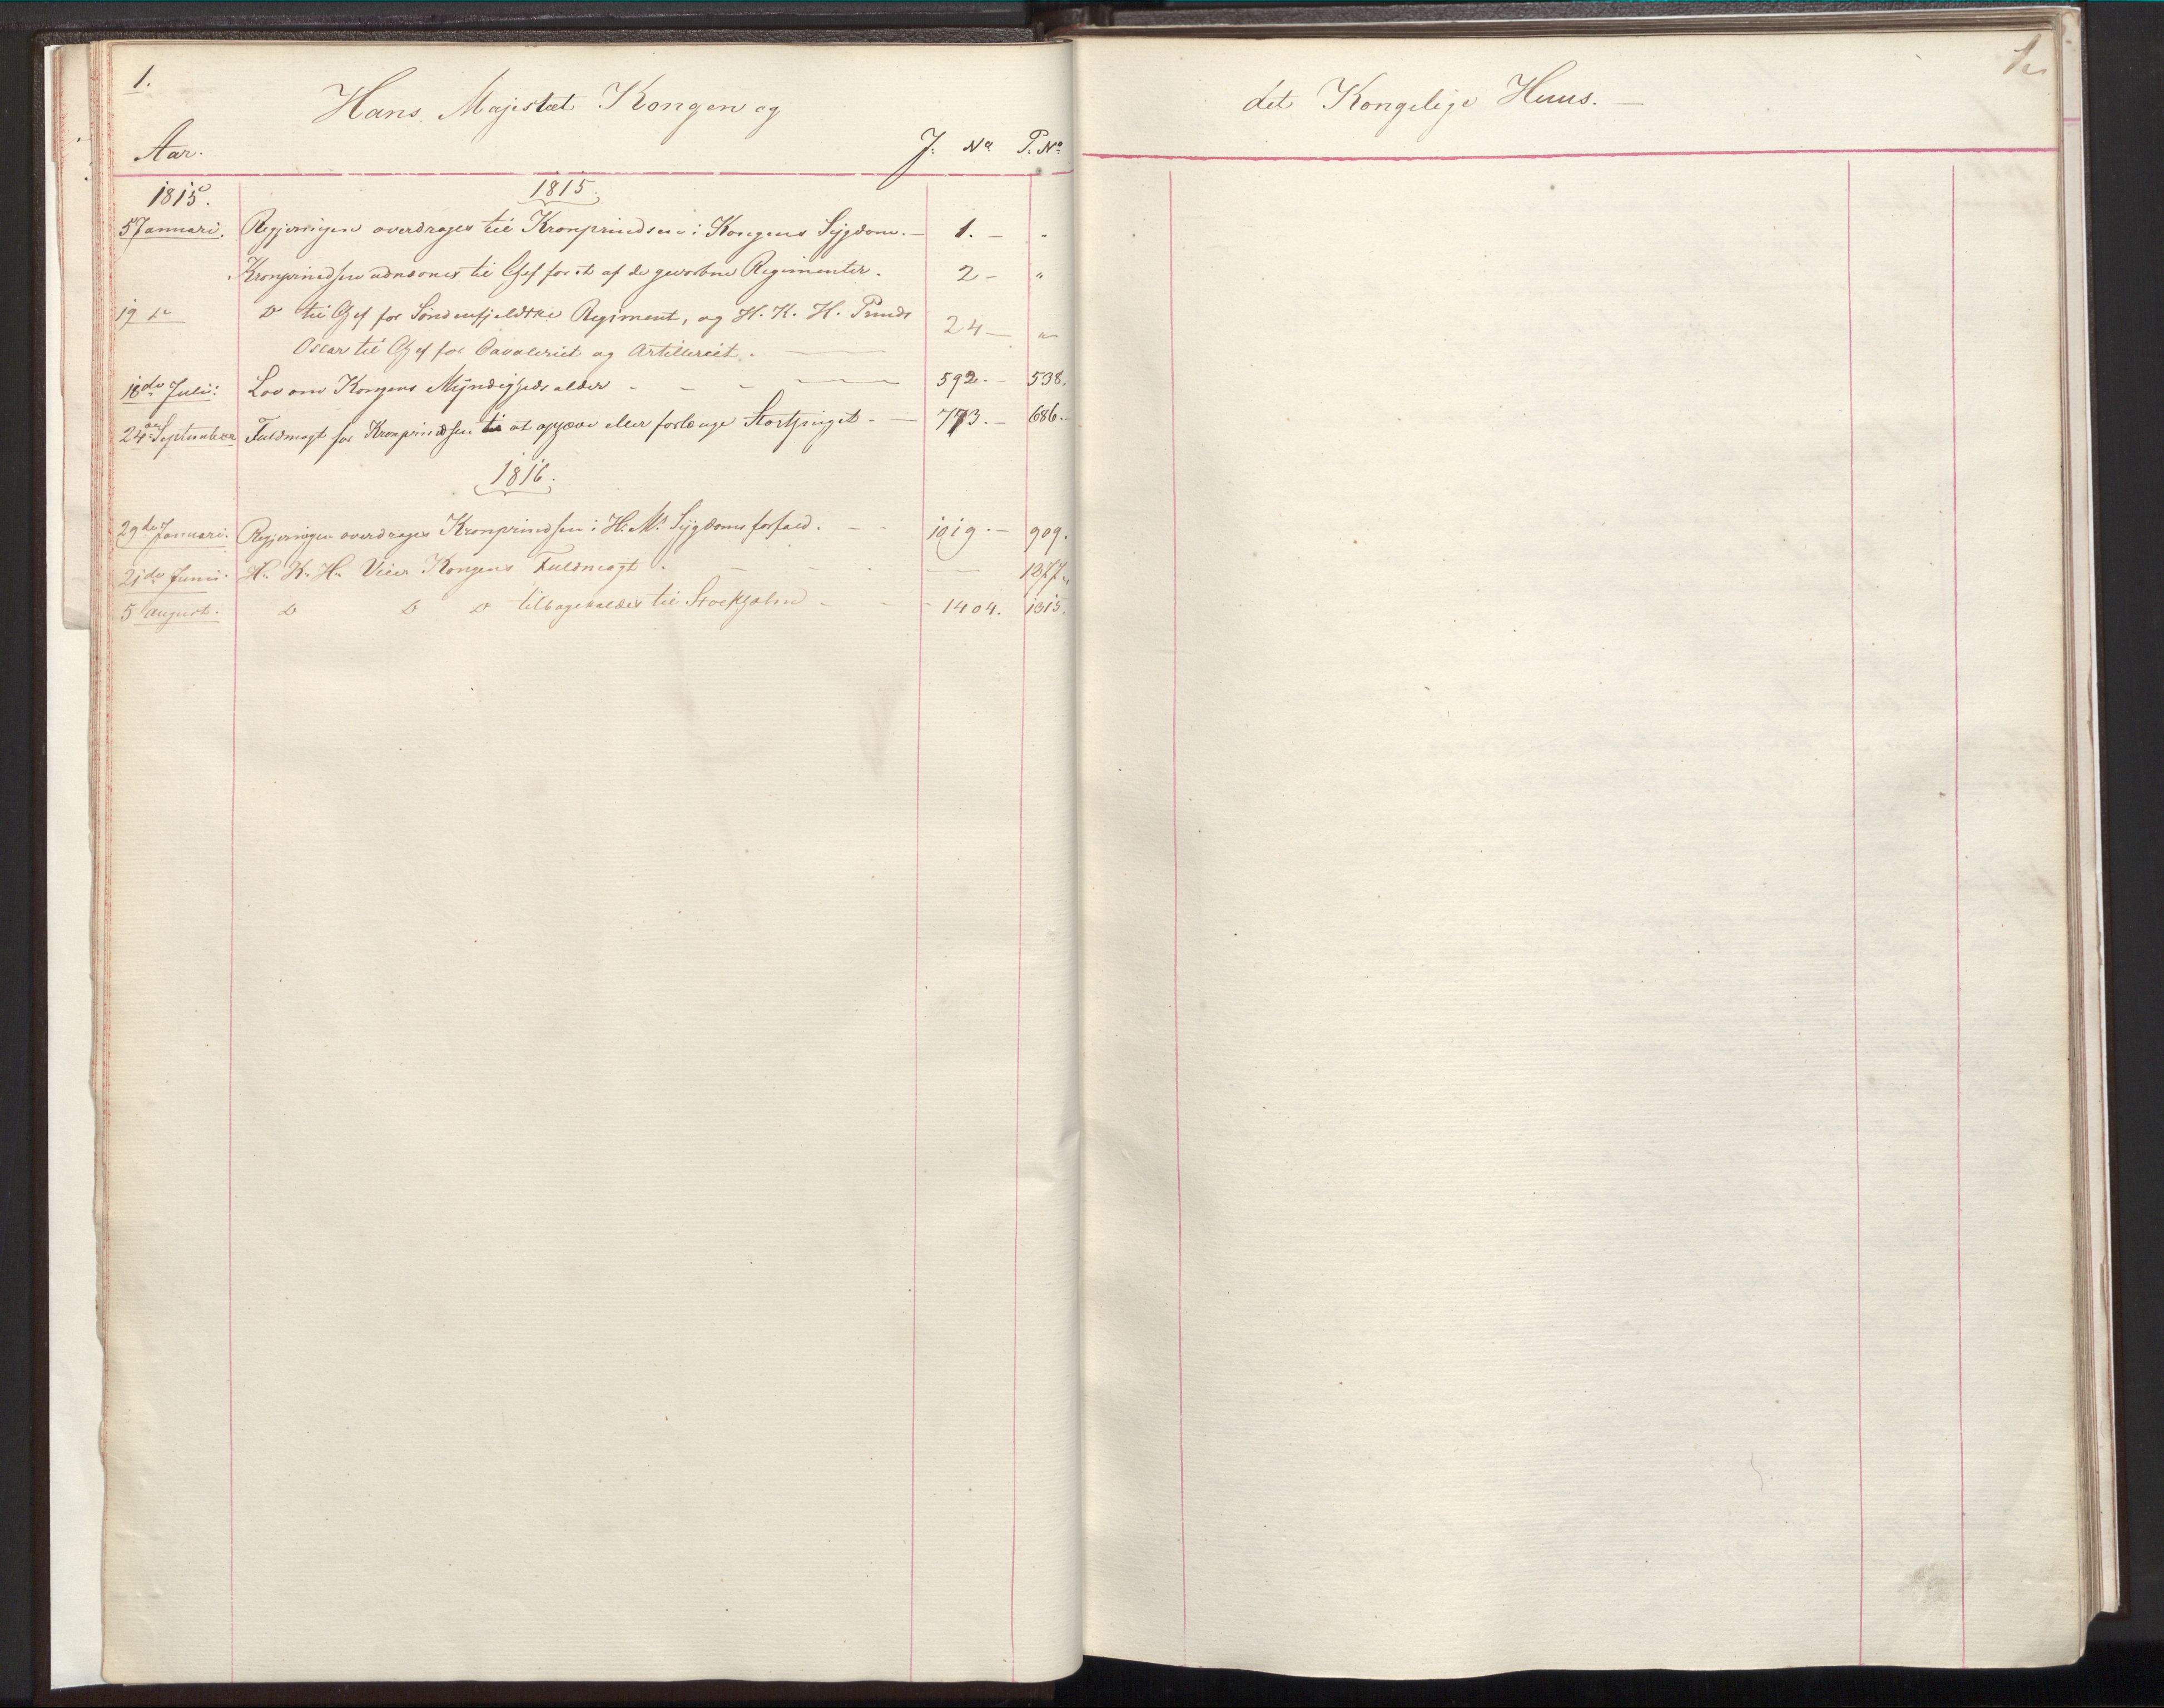 1.
Hans Majestæt Kongen og
Aar. J. No P. No
1815. 1815.
5 Januari. Regjeringen overdrages til Kronprindsen i Kongens Sygdom. — 1. — "
Kronprindsen udnævnes til Chef for et af de gevorbne Regimenter. 2 — "
19 do Do til Chef for Søndenfjeldske Regiment, og H. K. H. Prinds 24 — "
Oscar til Chef for Cavaleriet og Artilleriet. —
18de Julii. Lov om Kongens Myndigheds alder - - - — 592. — 538.
24de September Fuldmagt for Kronprindsen til at ophæve eller forlænge Storthinget — 773. — 686. —
1816.
29de Januari. Regjeringen overdrages Kronprindsen i H. Ms Sygdoms forfald. - - 1919. — 909.
21de Junii. H. K. H. Vice Kongens Fuldmagt. - - - — 1277.
5 August. Do Do Do tilbagekaldes til Stockholm - - - 1404. 1315.
det Kongelige Huus. —
1